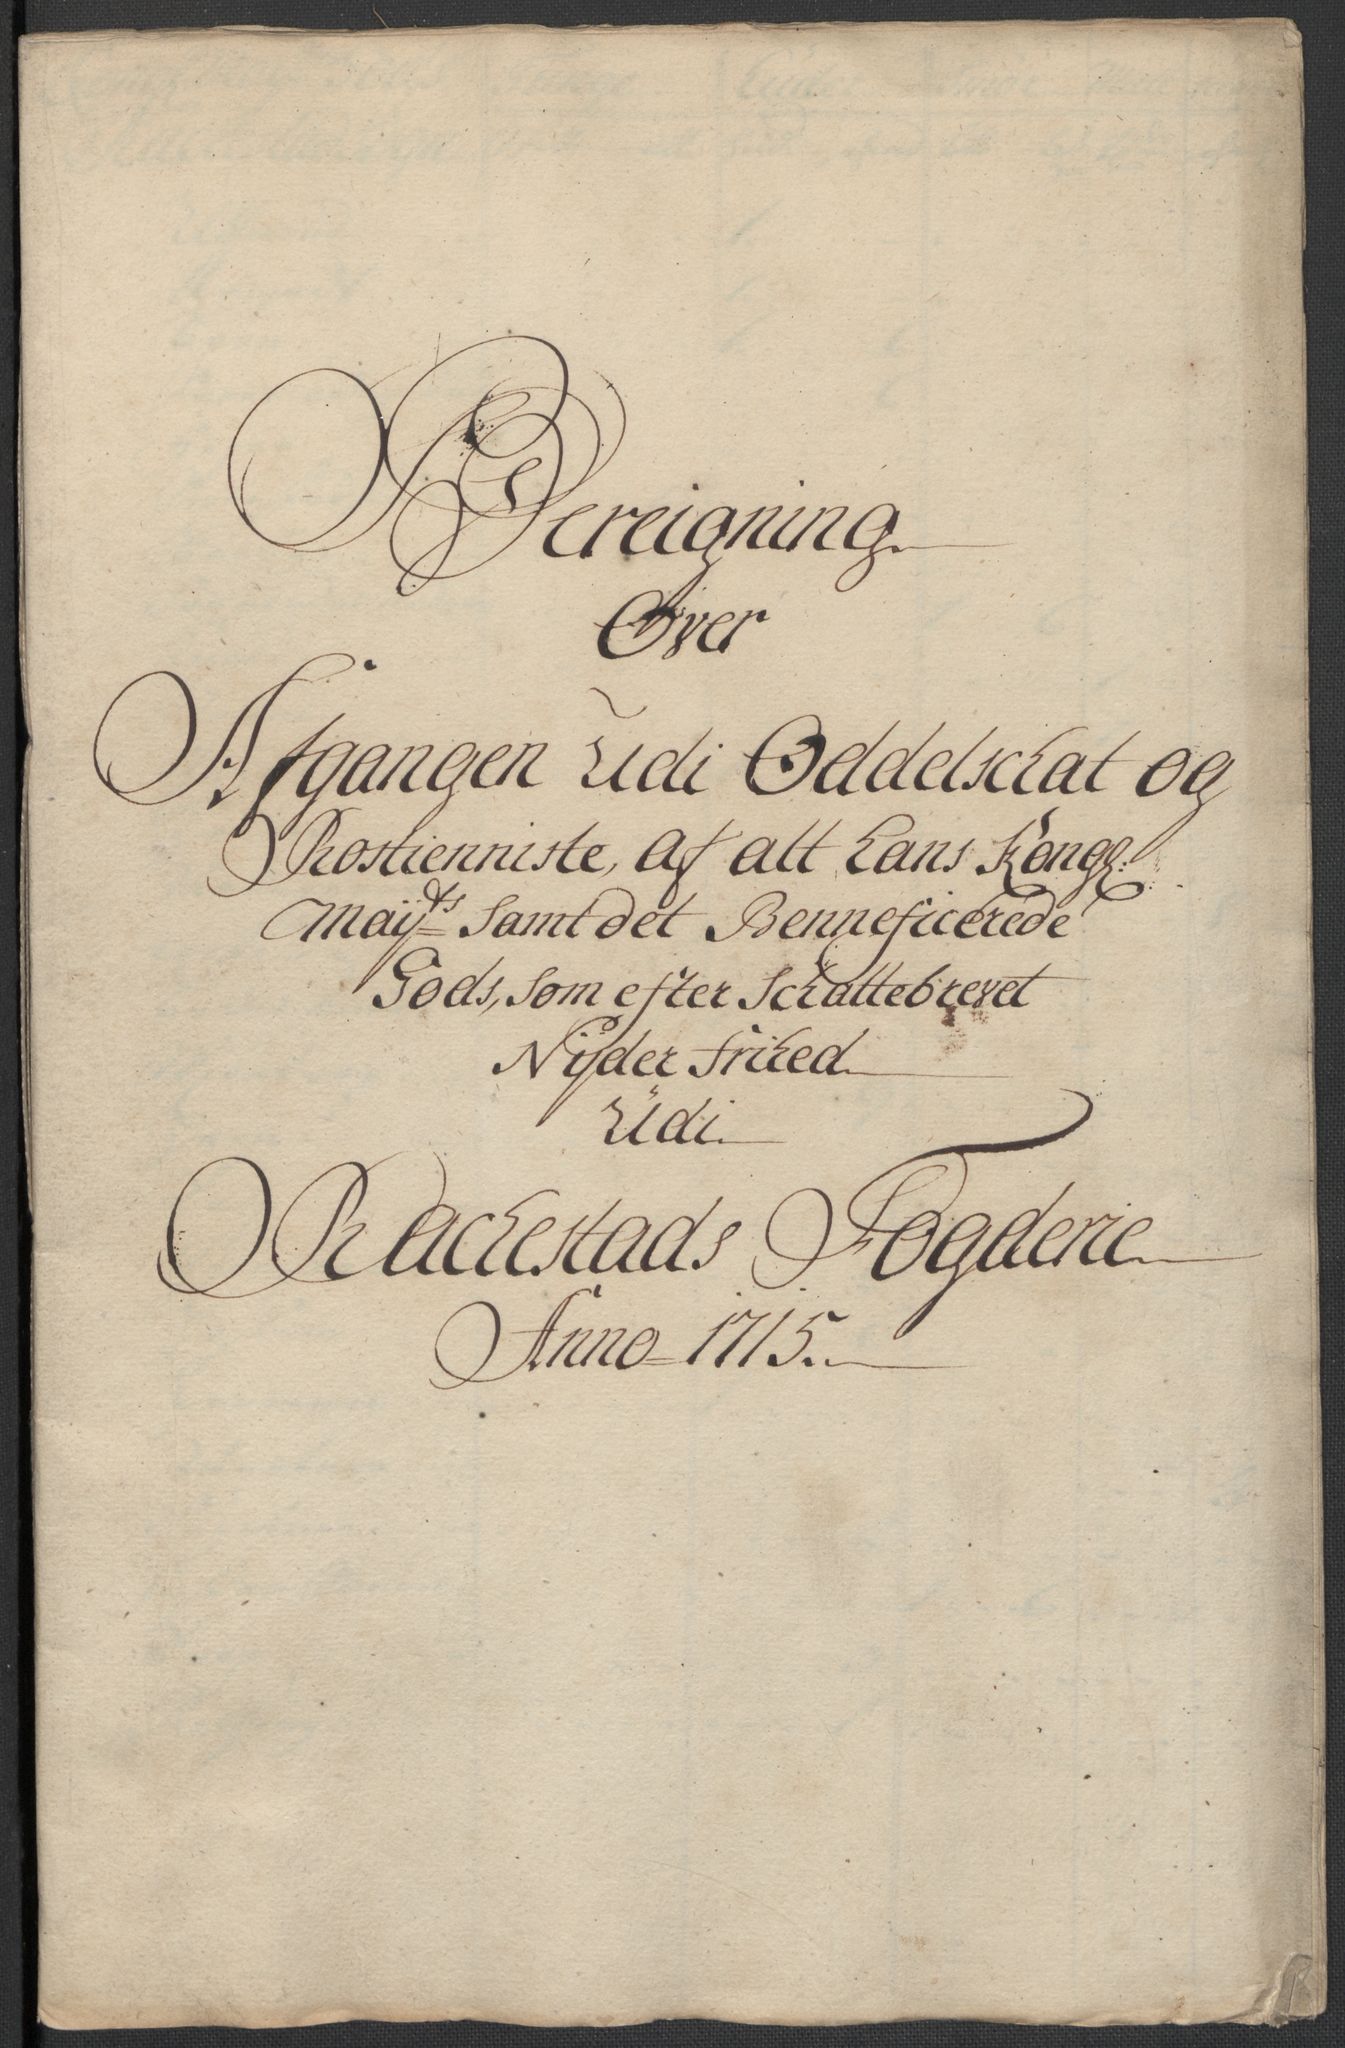 Bereigning
Over
Afgangen Udi Oddelschat og
Rostienniste, af alt hans Kongl:
Maij:ts Samt det Benneficerede
Gods, som efter Schattebrevet
Nijder frihed
Udi
Rachestads Fogderie
Anno 1715.